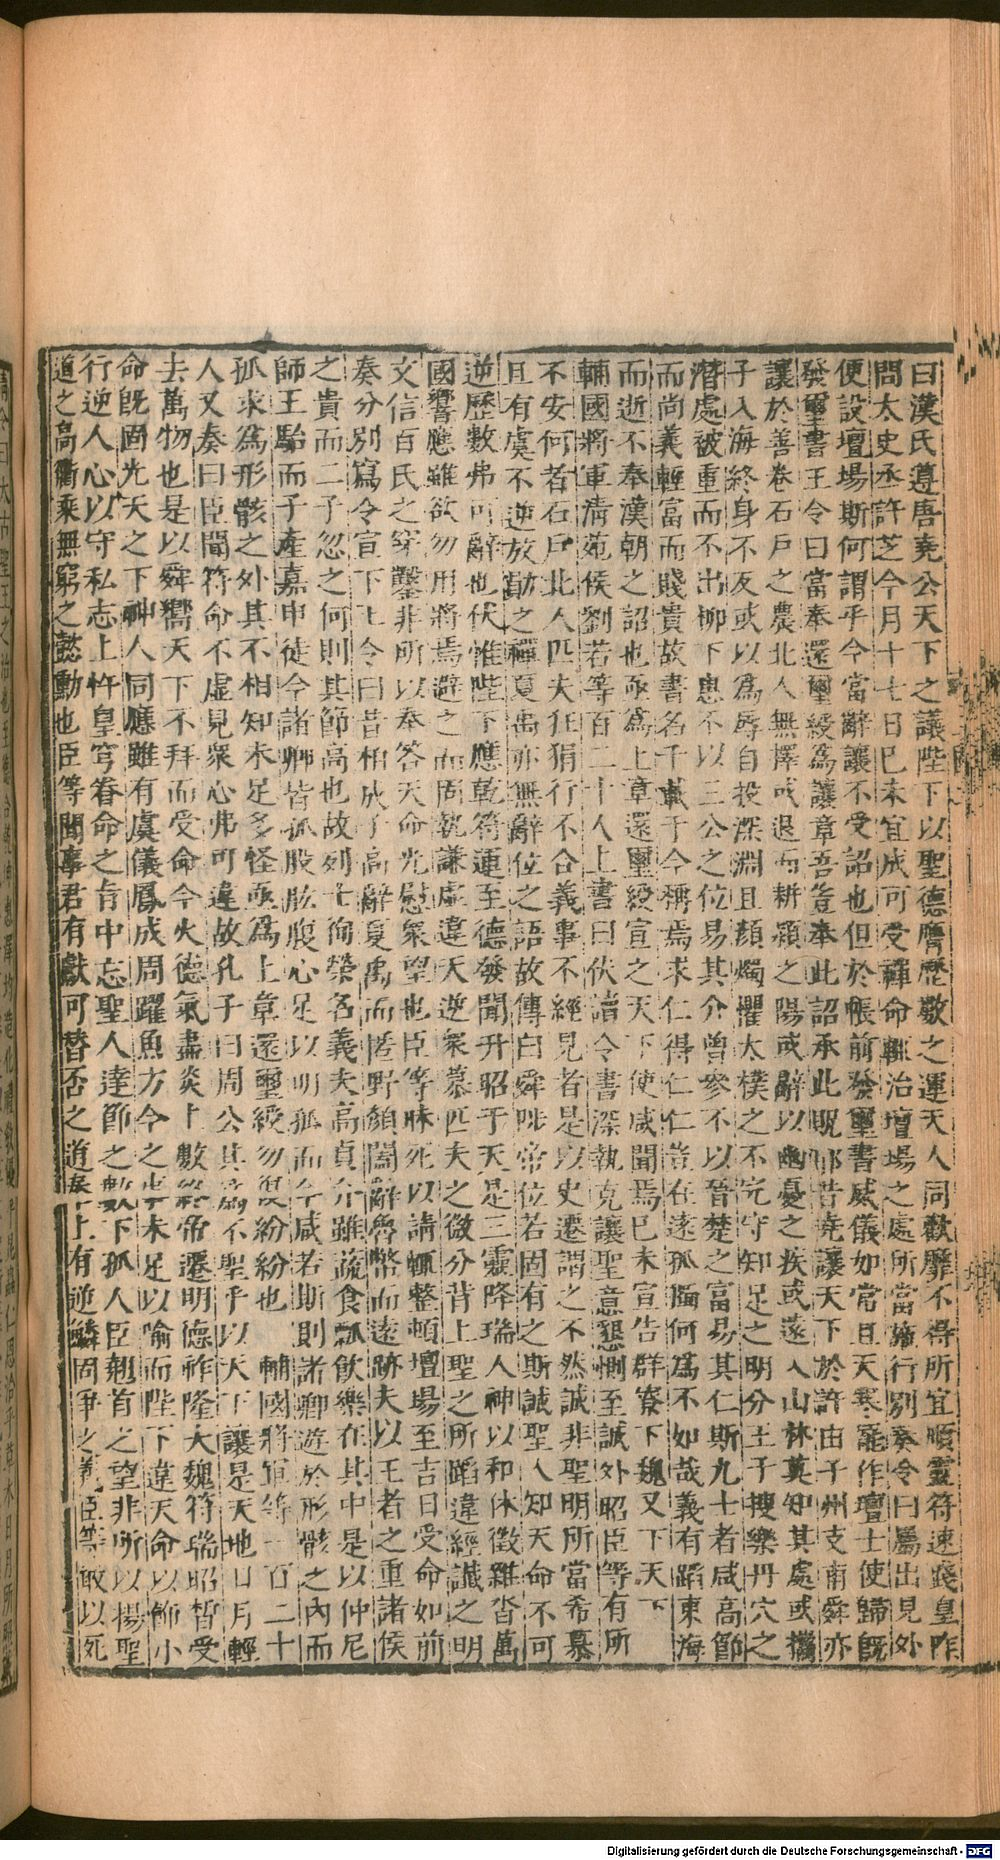 曰漢氏遵唐堯公天下之議陛下以聖德膺歷數之運天人同歡靡不得所宜順靈符速踐皇阼
問太史丞許芝今月十七日已未宜成可受禪命輒治壇場之處所當施行別奏令曰屬出見外
便設壇場斯何謂乎今當辭讓不受詔也但於帳前發璽書威儀如常且天寒罷作壇士使歸既
發璽書王令曰當奉還璽綬爲讓章吾豈奉此詔承此貺邪昔堯讓天下於許由子州支甫舜亦
讓於善卷石戶之農北人無擇或退而耕潁之陽或辭以幽憂之疾或遠入山林莫知其處或攜
子入海終身不反或以爲辱自投深淵且顏燭懼太樸之不完守知足之明分王子搜樂丹穴之
潛處被熏而不出柳下惠不以三公之位易其介曾參不以晉楚之富易其仁斯九士者咸高節
而尚義輕富而賤貴故書名千載于今稱焉求仁得仁仁豈在遠孤獨何爲不如哉義有蹈東海
而逝不奉漢朝之詔也亟爲上章還璽綬宣之天下使咸聞焉已未宣告群寮下魏又下天下
輔國將軍清苑侯劉若等百二十人上書曰伏讀令書深執克讓聖意懇惻至誠外昭臣等有所
不安何者石戶北人匹夫狂狷行不合義事不經見者是以史遷謂之不然誠非聖明所當希慕
且有虞不逆放勛之禪夏禹亦無辭位之語故傳曰舜陟帝位若固有之斯誠聖人知天命不可
逆歷數弗可辭也伏惟陛下應乾符運至德發聞升昭于天是三靈降瑞人神以和休徵雜沓萬
國響應雖欲勿用將焉避之而固執謙虛違天逆衆慕匹夫之微分背上聖之所蹈違經讖之明
文信百氏之穿鑿非所以奉答天命光慰衆望也臣等昧死以請輒整頓壇場至吉日受命如前
奏分別寫令宣下王令曰昔柏成子高辭夏禹而匿野顏闔辭魯幣而遠跡夫以王者之重諸侯
之貴而二子忽之何則其節高也故列士徇榮名義夫高貞介雖蔬食瓢飲樂在其中是以仲尼
師王駘而子產嘉申徒今諸卿皆孤股肱腹心足以明孤而今咸若斯則諸卿遊於形骸之內而
孤求爲形骸之外其不相知未足多怪亟爲上章還璽綬勿復紛紛也　輔國將軍等一百二十
人又奏曰臣聞符命不虛見衆心弗可違故孔子曰周公其爲不聖乎以天下讓是天地日月輕
去萬物也是以舜嚮天下不拜而受命今火德氣盡炎上數終帝遷明德祚隆大魏符瑞昭晳受
命既固光天之下神人同應雖有虞儀鳳成周躍魚方今之事未足以喻而陛下違天命以飾小
行逆人心以守私志上忤皇穹眷命之旨中忘聖人達節之數下孤人臣翹首之望非所以揚聖
道之高衢乘無窮之懿勳也臣等聞事君有獻可替否之道奉上有逆鱗固爭之義臣等敢以死
Digitalisierung gefördert durch die Deutsche Forschungsgemeinschaft - DFG